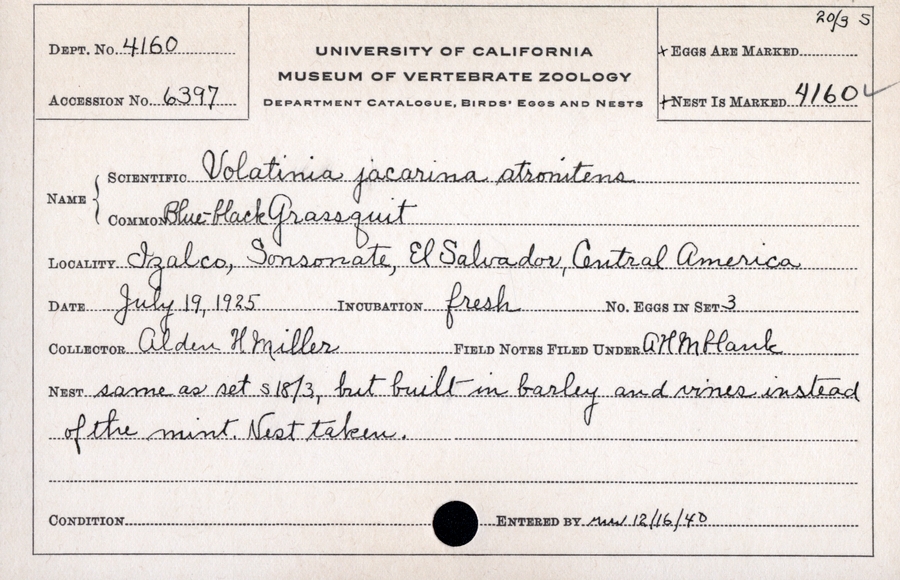 20/3 S
DEPT. NO. 4160
UNIVERSITY OF CALIFORNIA
+ EGGS ARE MARKED
MUSEUM OF VERTEBRATE ZOOLOGY
ACCESSION NO. 6397
DEPARTMENT CATALOGUE, BIRDS' EGGS AND NESTS
+ NEST IS MARKED 4160 ✓
NAME { SCIENTIFIC Volatinia jacarina atronitens
COMMON Blue-black Grassquit
LOCALITY Izalco, Sonsonate, El Salvador, Central America
DATE July 19, 1925 INCUBATION fresh NO. EGGS IN SET 3
COLLECTOR Alden H Miller FIELD NOTES FILED UNDER AHM blank
NEST same as set s 18/3, but built in barley and vines instead
of the mint. Nest taken.
CONDITION ENTERED BY 12/16/40